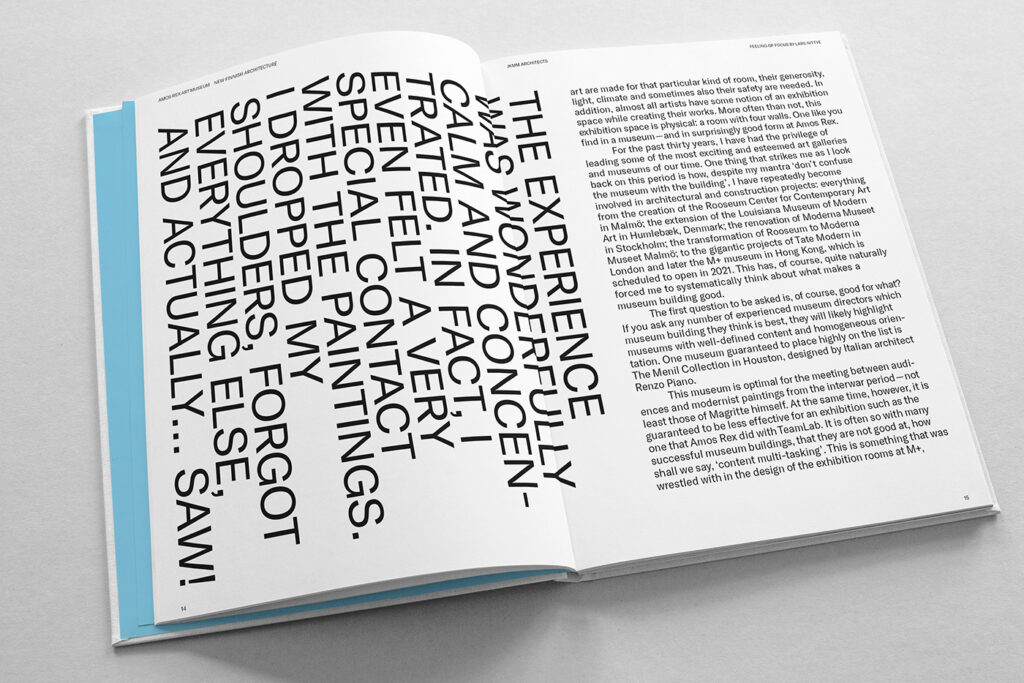 AMOS REX ART MUSEUM NEW FINNISH ARCHITECTURE
THE EXPERIENCE
WAS WONDERFULLY
CALM AND CONCEN-
TRATED. IN FACT, I
EVEN FELT A VERY
SPECIAL CONTACT
WITH THE PAINTINGS.
I DROPPED MY
SHOULDERS, FORGOT
EVERYTHING ELSE,
AND ACTUALLY... SAW!
14
JKMM ARCHITECTS
FEELING OF FOCUS BY LARS NITTVE
art are made for that particular kind of room, their generosity,
light, climate and sometimes also their safety are needed. In
addition, almost all artists have some notion of an exhibition
space while creating their works. More often than not, this
exhibition space is physical: a room with four walls. One like you
find in a museum—and in surprisingly good form at Amos Rex.
For the past thirty years, I have had the privilege of
leading some of the most exciting and esteemed art galleries
and museums of our time. One thing that strikes me as I look
back on this period is how, despite my mantra ‘don’t confuse
the museum with the building’, I have repeatedly become
involved in architectural and construction projects: everything
from the creation of the Rooseum Center for Contemporary Art
in Malmö; the extension of the Louisiana Museum of Modern
Art in Humlebæk, Denmark; the renovation of Moderna Museet
in Stockholm; the transformation of Rooseum to Moderna
Museet Malmö; to the gigantic projects of Tate Modern in
London and later the M+ museum in Hong Kong, which is
scheduled to open in 2021. This has, of course, quite naturally
forced me to systematically think about what makes a
museum building good.
The first question to be asked is, of course, good for what?
If you ask any number of experienced museum directors which
museum building they think is best, they will likely highlight
museums with well-defined content and homogeneous orien-
tation. One museum guaranteed to place highly on the list is
The Menil Collection in Houston, designed by Italian architect
Renzo Piano.
This museum is optimal for the meeting between audi-
ences and modernist paintings from the interwar period—not
least those of Magritte himself. At the same time, however, it is
guaranteed to be less effective for an exhibition such as the
one that Amos Rex did with TeamLab. It is often so with many
successful museum buildings, that they are not good at, how
shall we say, ‘content multi-tasking’. This is something that was
wrestled with in the design of the exhibition rooms at M+,
15